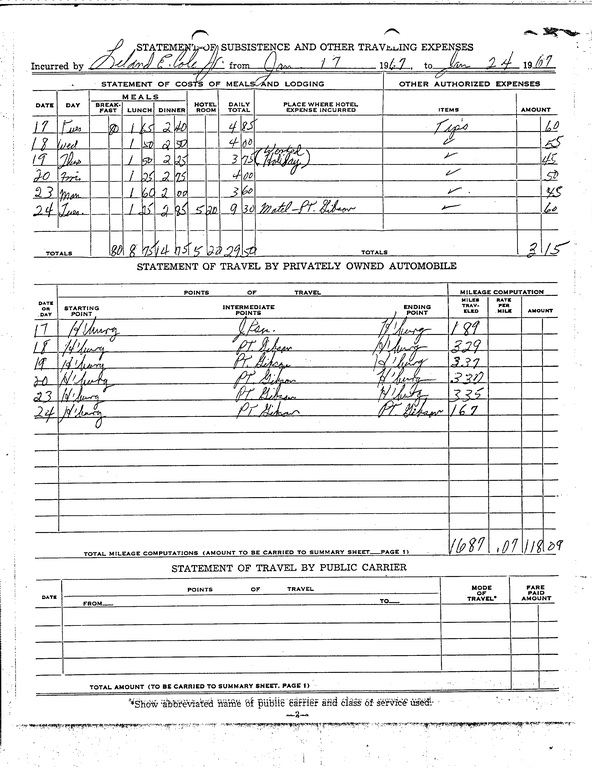 STATEMENT OF SUBSISTENCE AND OTHER TRAVELING EXPENSES
Incurred by Leland E. Cole Jr. from Jan 17 1967, to Jan 24 1967
STATEMENT OF COSTS OF MEALS AND LODGING OTHER AUTHORIZED EXPENSES
DATE DAY MEALS BREAK-FAST LUNCH DINNER HOTEL ROOM DAILY TOTAL PLACE WHERE HOTEL EXPENSE INCURRED ITEMS AMOUNT
17 Tues 80 1 65 2 40 4 85 Tips 60
18 Wed 1 50 2 50 4 00 ✓ 55
19 Thur 1 50 2 25 3 75 (Worked Holiday) ✓ 45
20 Fri 1 25 2 75 4 00 ✓ 50
23 Mon 1 60 2 00 3 60 ✓ 45
24 Tues. 1 25 2 85 5 20 9 30 Motel - PT. Gibson ✓ 60
TOTALS 80 8 75 14 75 5 20 29 50 TOTALS 3 15
STATEMENT OF TRAVEL BY PRIVATELY OWNED AUTOMOBILE
POINTS OF TRAVEL MILEAGE COMPUTATION
DATE OR DAY STARTING POINT INTERMEDIATE POINTS ENDING POINT MILES TRAV-ELED RATE PER MILE AMOUNT
17 H'burg H'burg 189
18 H'burg PT. Gibson H'burg 329
19 H'burg PT. Gibson H'burg 337
20 H'burg PT. Gibson H'burg 330
23 H'burg PT. Gibson H'burg 335
24 H'burg PT. Gibson PT. Gibson 167
TOTAL MILEAGE COMPUTATIONS (AMOUNT TO BE CARRIED TO SUMMARY SHEET PAGE 1) 1687 .07 118 09
STATEMENT OF TRAVEL BY PUBLIC CARRIER
DATE POINTS OF TRAVEL MODE OF TRAVEL* FARE PAID AMOUNT
FROM TO
TOTAL AMOUNT (TO BE CARRIED TO SUMMARY SHEET. PAGE 1)
*Show abbreviated name of public carrier and class of service used.
—2—